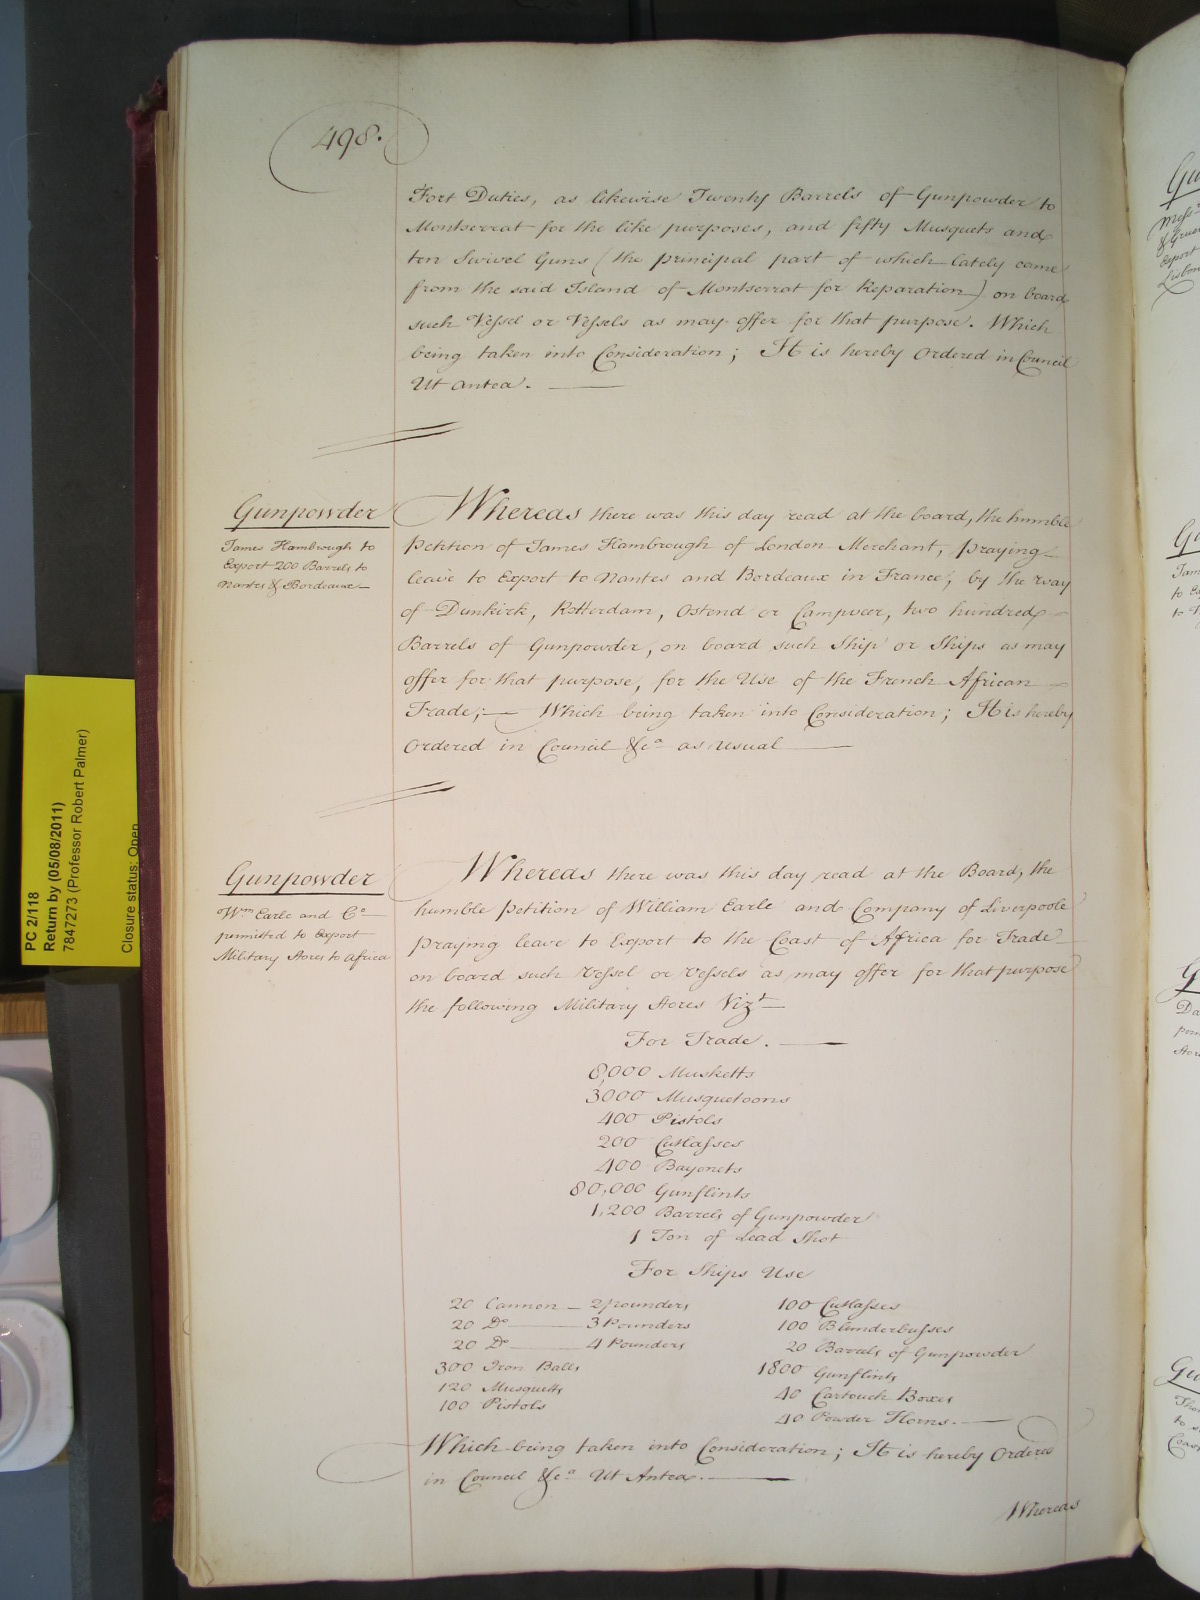 498.
Fort Duties, as likewise Twenty Barrels of Gunpowder to
Montserrat for the like purposes, and fifty Musquets and
ten Swivel Guns (the principal part of which lately came
from the said Island of Montserrat for Reparation) on board
such Vessel or Vessels as may offer for that purpose. Which
being taken into Consideration; It is hereby Ordered in Council
Ut antea.
Gunpowder
James Hambrough to
Export 200 Barrels to
Nantes & Bordeaux
Whereas there was this day read at the board, the humble
Petition of James Hambrough of London Merchant, praying
leave to Export to Nantes and Bordeaux in France, by the way
of Dunkirk, Rotterdam, Ostend or Campveer, two hundred
Barrels of Gunpowder, on board such Ship or Ships as may
offer for that purpose, for the Use of the French African
Trade; Which being taken into Consideration; It is hereby
Ordered in Council &ca as usual
Gunpowder
Wm Earle and Co
permitted to Export
Military Stores to Africa
Whereas there was this day read at the Board, the
humble Petition of William Earle and Company of Liverpoole
praying leave to Export to the Coast of Africa for Trade
on board such Vessel or Vessels as may offer for that purpose
the following Military Stores Vizt
For Trade.
8,000 Musketts
3000 Musquetoons
400 Pistols
200 Cutlasses
400 Bayonets
80,000 Gunflints
1,200 Barrels of Gunpowder
1 Ton of Lead Shot
For Ships Use
20 Cannon 2 pounders
20 Do 3 Pounders
20 Do 4 Pounders
300 Iron Balls
120 Musquetts
100 Pistols
100 Cutlasses
100 Blunderbusses
20 Barrels of Gunpowder
1800 Gunflints
40 Cartouch Boxes
40 Powder Horns.
Which being taken into Consideration; It is hereby Ordered
in Council &ca Ut Antea.
Whereas
PC 2/118
Return by (05/08/2011)
7847273 (Professor Robert Palmer)
Closure status: Open